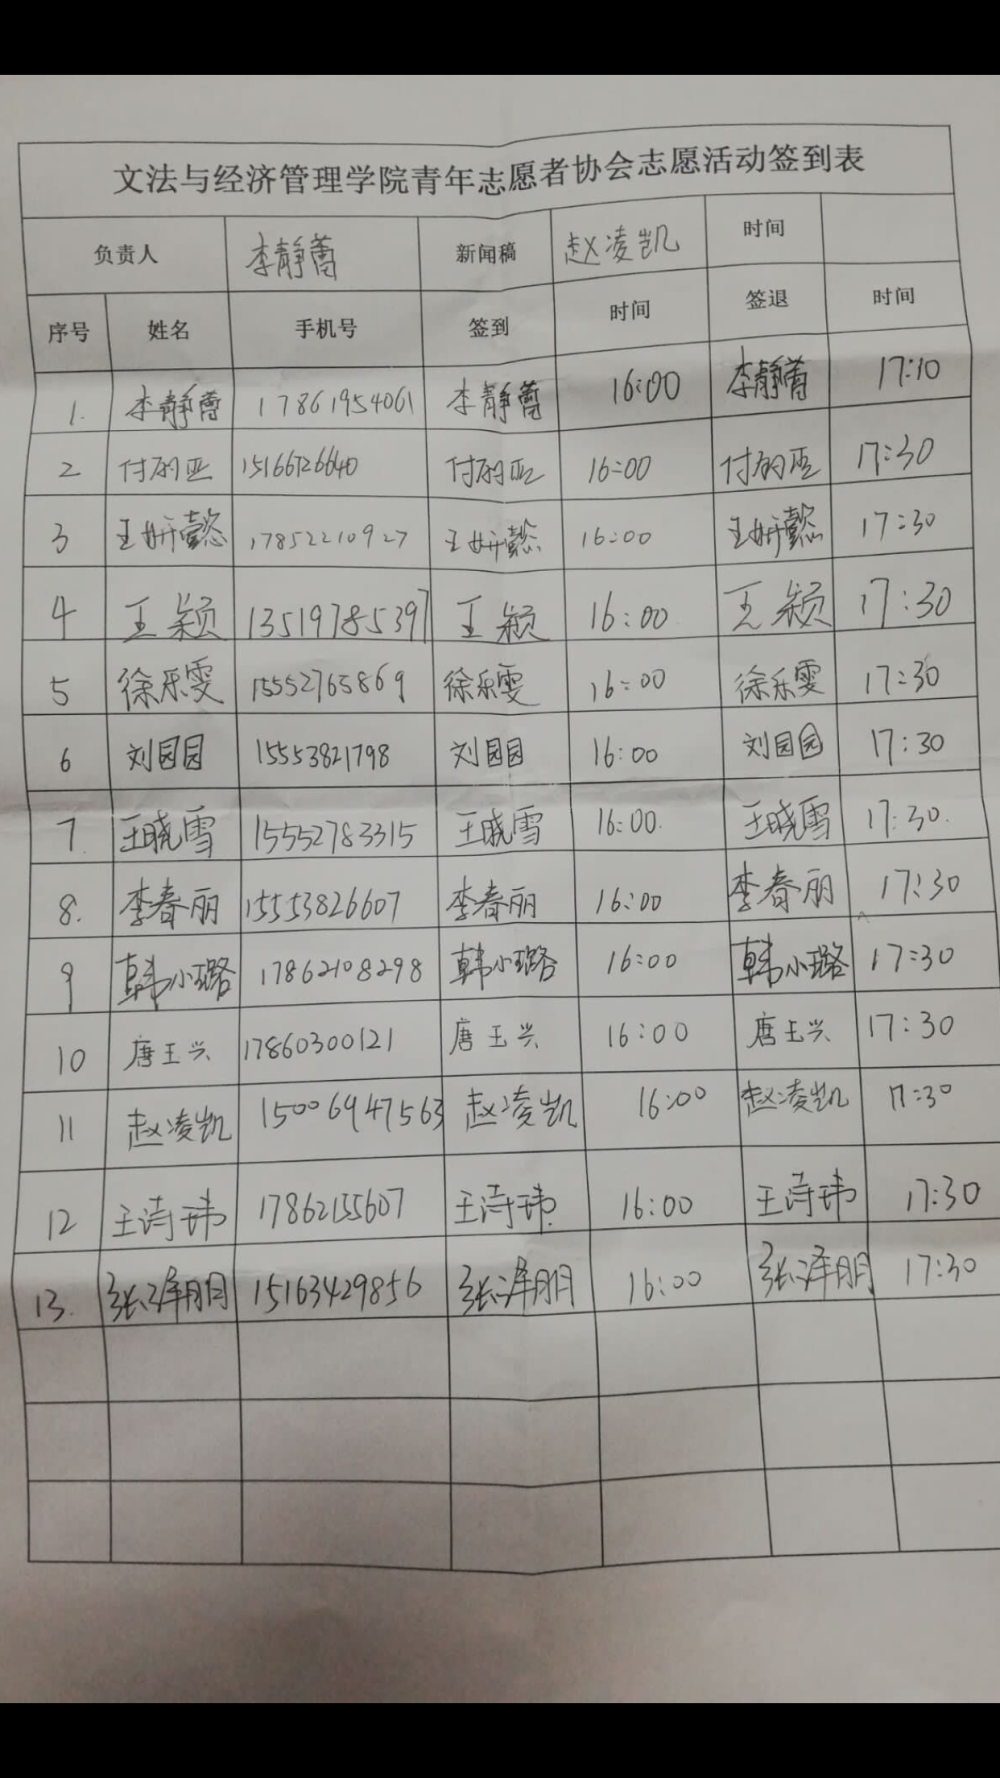 文法与经济管理学院青年志愿者协会志愿活动签到表
负责人 李静蕾 新闻稿 赵凌凯 时间
序号 姓名 手机号 签到 时间 签退 时间
1. 李静蕾 17861954061 李静蕾 16:00 李静蕾 17:10
2 付丽亚 15166726640 付丽亚 16:00 付丽亚 17:30
3 王妍懿 17852210927 王妍懿 16:00 王妍懿 17:30
4 王颖 13519785397 王颖 16:00 王颖 17:30
5 徐乐雯 15552765869 徐乐雯 16:00 徐乐雯 17:30
6 刘园园 15553821798 刘园园 16:00 刘园园 17:30
7. 王晓雪 15552783315 王晓雪 16:00. 王晓雪 17:30.
8. 李春丽 15553826607 李春丽 16:00 李春丽 17:30
9 韩小璐 17862108298 韩小璐 16:00 韩小璐 17:30
10 唐玉兴 17860300121 唐玉兴 16:00 唐玉兴 17:30
11 赵凌凯 15006947563 赵凌凯 16:00 赵凌凯 17:30
12 王诗玮 17862155607 王诗玮 16:00 王诗玮 17:30
13. 张泽明 15163429856 张泽明 16:00 张泽明 17:30